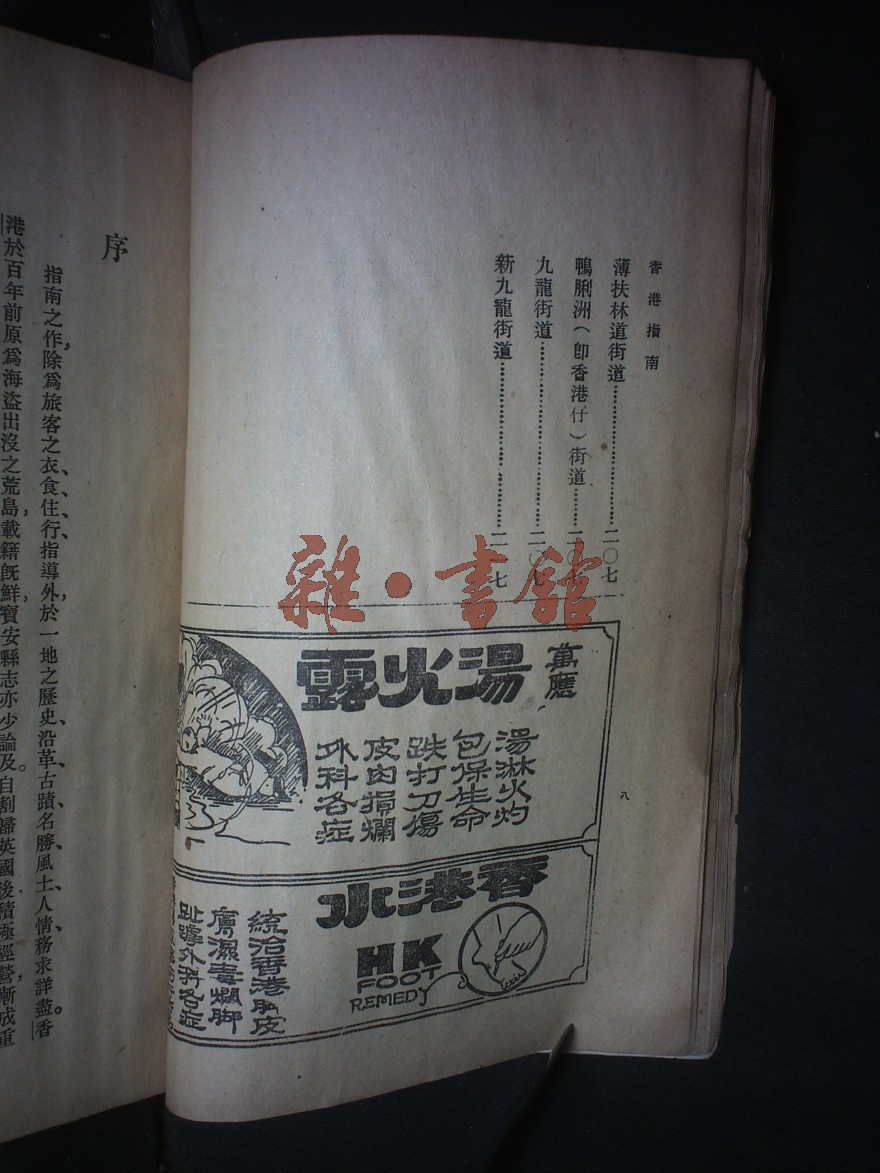 香港指南
薄扶林道街道……二〇七
鴨脷洲(即香港仔)街道……二〇
九龍街道……二〇
新九龍街道……二一七
八
雜·書館
萬應
湯火露
湯淋火灼
包保生命
跌打刀傷
皮肉損爛
外科各症
香港水
HK
FOOT
REMEDY
統治香港脚皮
膚濕毒爛脚
趾罅外科各症
序
指南之作,除爲旅客之衣、食、住、行、指導外,於一地之歷史、沿革、古蹟、名勝、風土、人情、務求詳盡。香
港於百年前原爲海盜出沒之荒島,載籍旣鮮,寶安縣志亦少論及。自割歸英國後,積極經營,漸成重